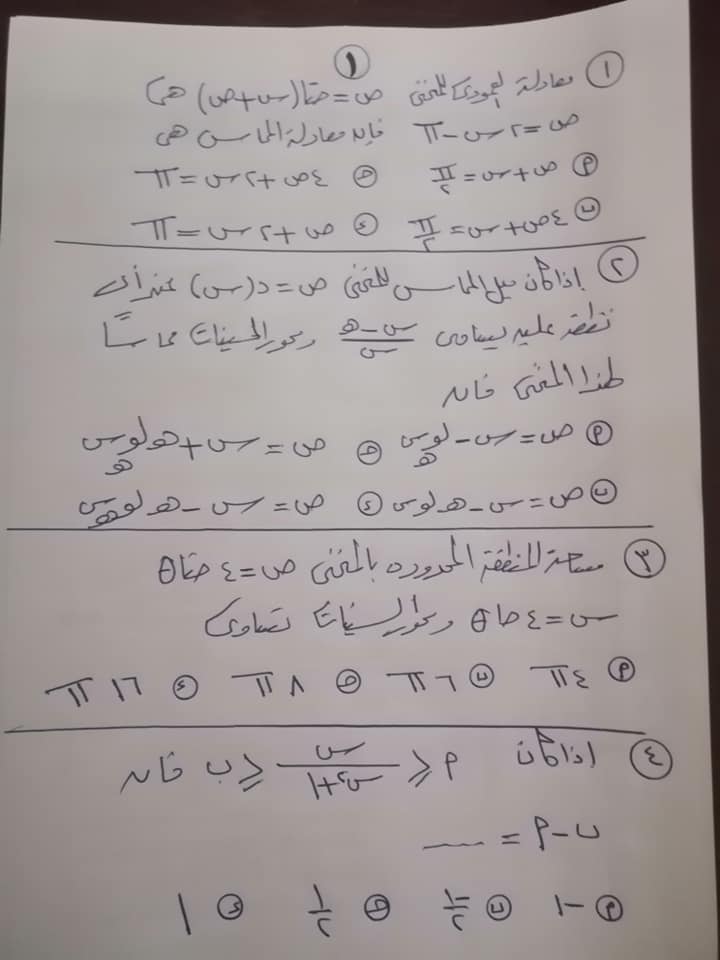 ١
١ معادلة العمودى للمنحنى ص = حتا(س+ص) هى
ص = ٢س - π فإن معادلة المماس هى
P ص + س = π/٢ حـ ٤ص + ٢س = π
ب ٤ص + س = π/٢ ء ص + ٢س = π
٢ إذا كان ميل المماس للمنحنى ص = د(س) عند أى
نقطة عليه يساوى (س - هـ)/س ومحور السينات مماسًا
لهذا المنحنى فإن
P ص = س - لوس هـ حـ ص = س + هـ لوس هـ
ب ص = س - هـ لوس ء ص = س - هـ لوس هـ
٣ مساحة المنطقة المحدودة بالمنحنى ص = ٤ حتا θ
س = ٤ حا θ ومحور السينات تساوى
P ٤ π ب ٦ π حـ ٨ π ء ١٦ π
٤ إذا كان P ≤ س/(س² + ١) ≤ ب فإن
ب - P = ــــ
P -١ ب -١/٢ حـ ١/٢ ء ١